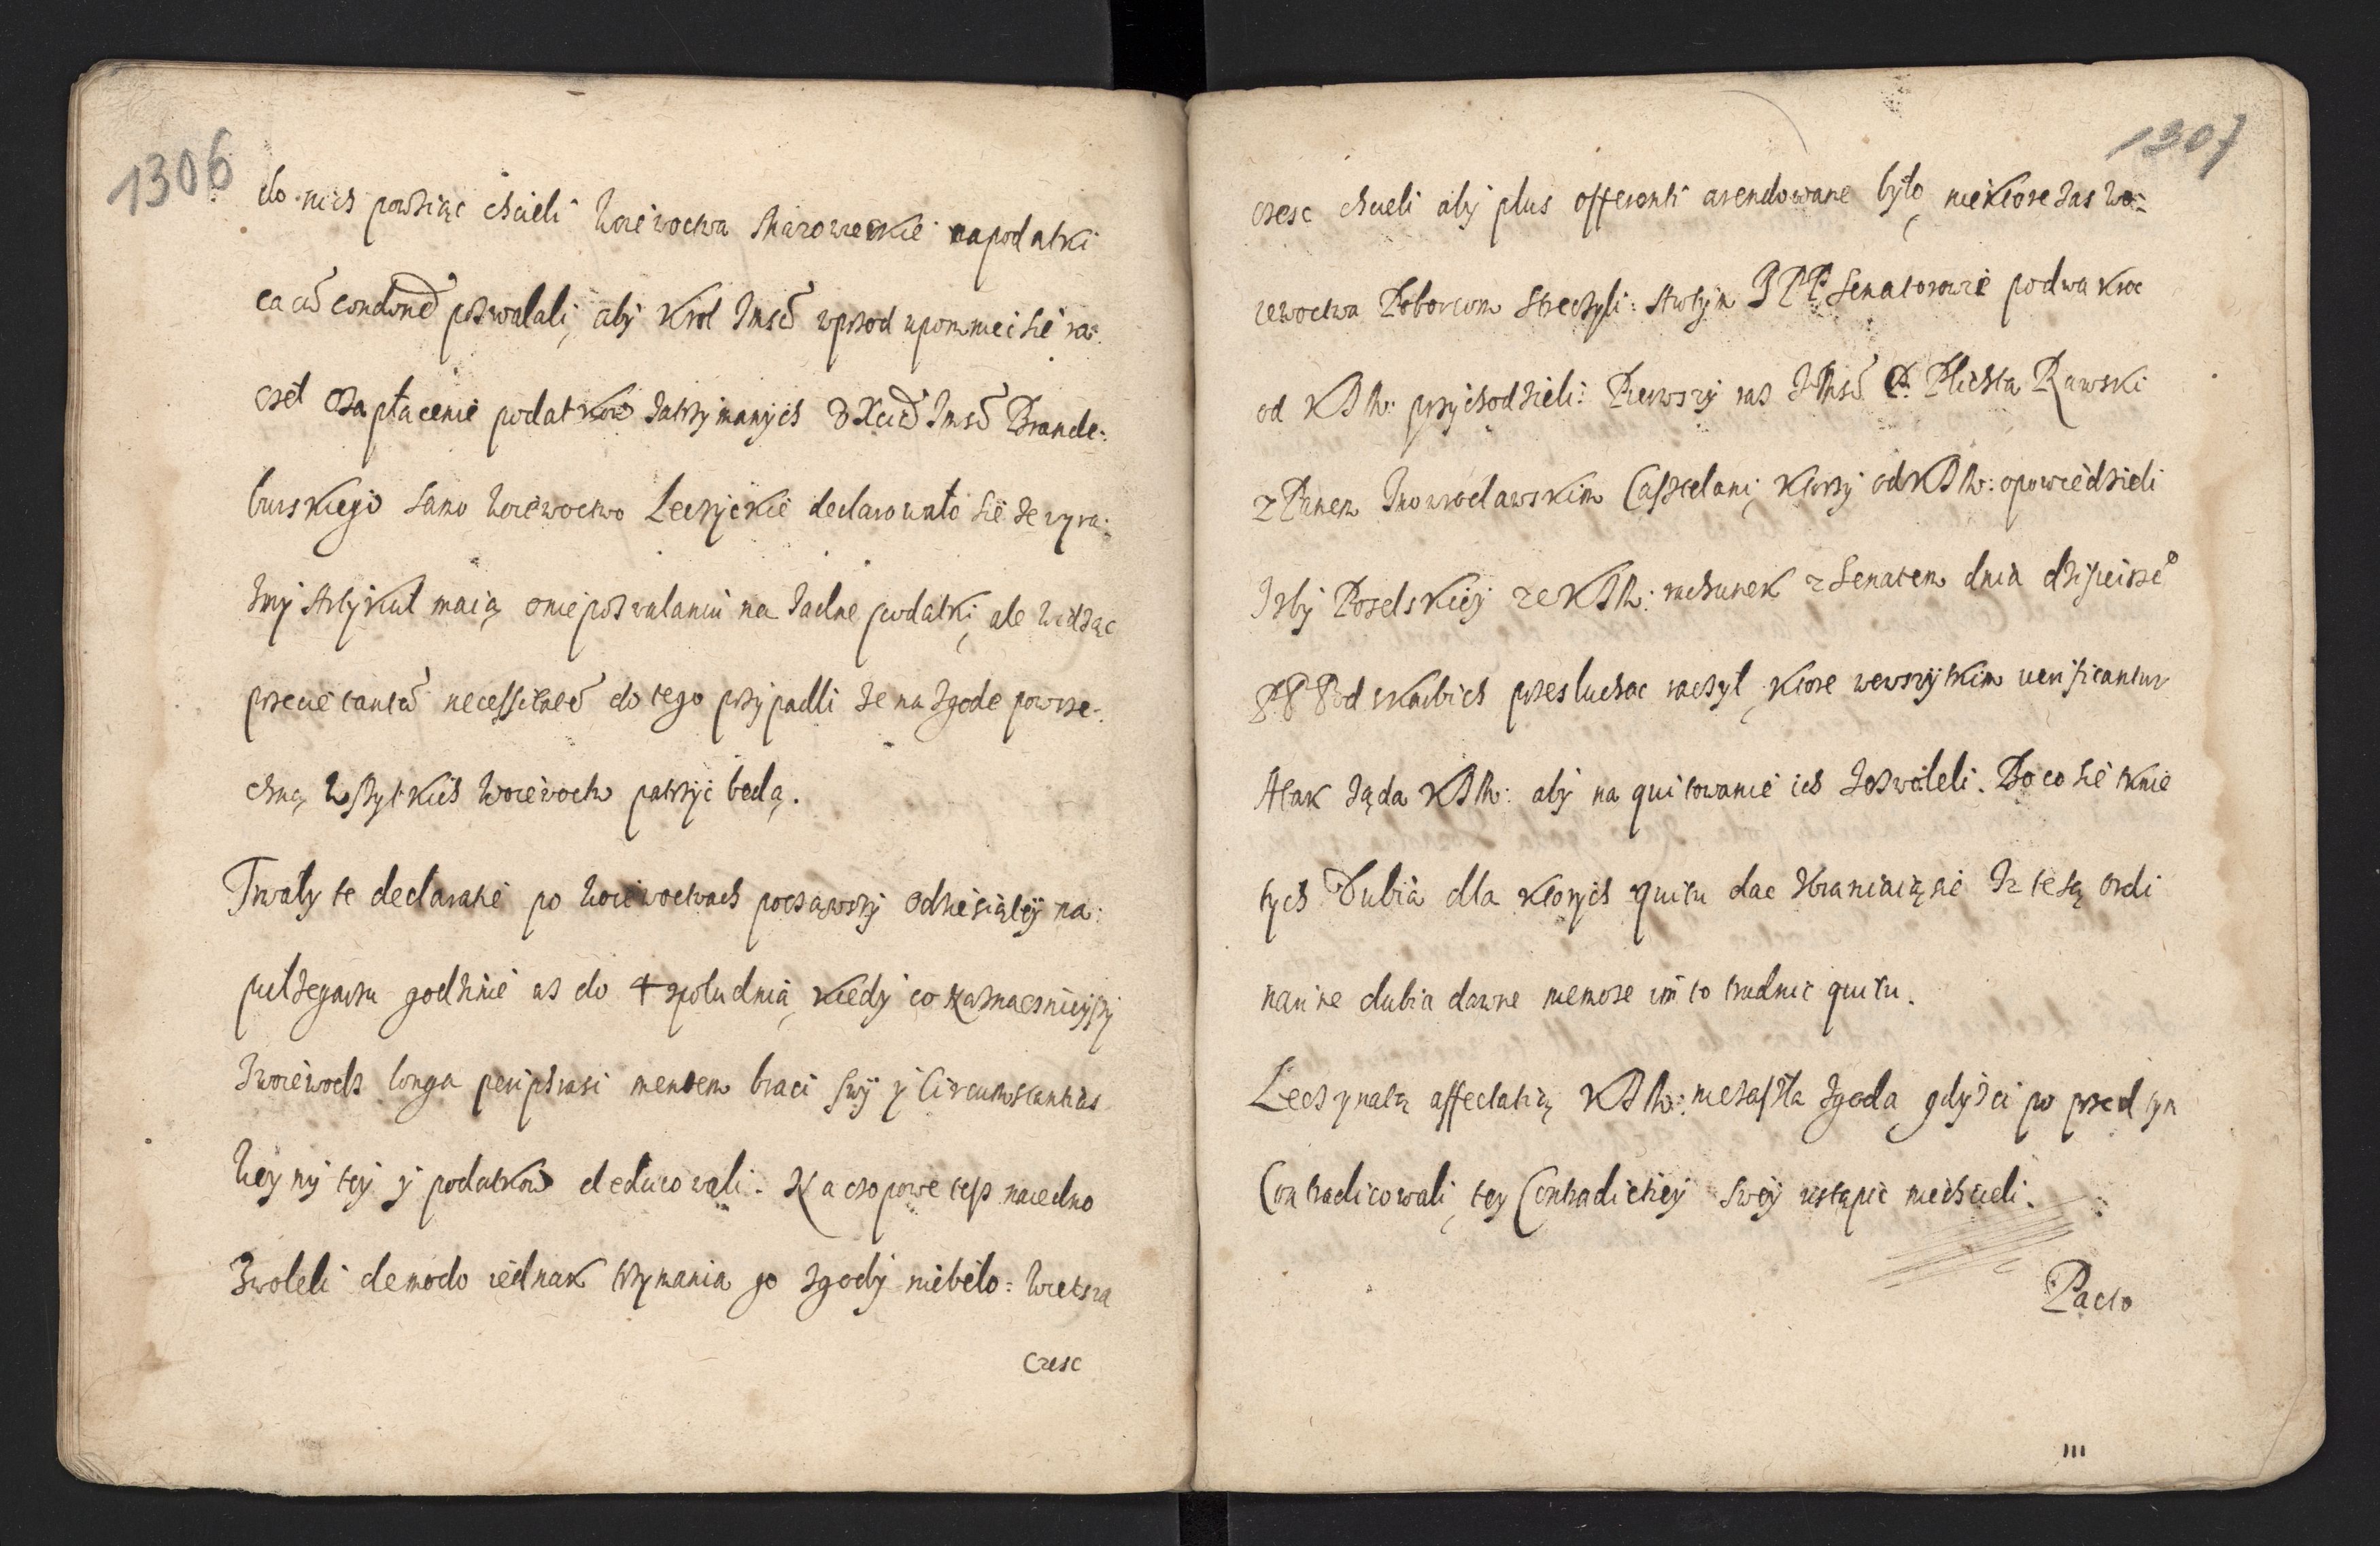 1306
do nich powziąc chcieli Woiewoctwa Mazowieckie na podatki
ea cũ condonẽ pozwalali, aby Krol Jmsč wprzod upomniec sie ra-
czeł o zapłacenie podatkow zatrzymanych X Jmsč Brande-
burskiego samo Woiewoctwo Lecżyckie declarowało sie ze wyra-
zny Artykuł maią o niepozwalaniu na zadne podatki, ale widząc
przecie tantã necessitatẽ do tego przypadli ze na zgode powsze-
chną wszytkich Woiewoctw patrzyc będą.
Trwały te declaratie po Woiewoctwach począwszy od dziesiątey na
puł zegarzu godzinie as do 4 z południa, kiedy co zacnieyszy
z woiewodz longa periphrasi mentem braci swy y circumstantias
Woyny tey y podatkow deducowali. Na czopowe tesz na iedno
Zwoleli de modo iednak trzymania go zgody niebeło: wietsza
czesc
1307
czesc chcieli aby plus offerenti arendowane było, niektore zas wo-
iewoctwa Poborcom zlecżyli: A wtym J PP Senatorowie po dwa kroc
od KJM: przychodzieli: Pierwszy raz JMsč P. Plichta Rawski
z Panem Inowrocławskim Casztelani, ktorzy od KJM: opowiedzieli
Izby Poselskiey ze KJM: rachunek z Senatem dnia dzisieisze°
PP Podskarbich przesłuchac raczył, ktore wewszytkim verificantur
A tak ząda KJM: aby na quitowanie ich zezwoleli. Bo co sie tknie
tych Dubia dla ktorych quitu dac zbraniaią sie Iz te są ordi
narine dubia dawne niemoze im to trudnic quitu.
Lecz y na tą affectatią KJM: niezaszła zgoda gdyz ci po przed tym
Contradicowali, tey Contradictiey swey ustąpic niechcieli.
Pacto
III